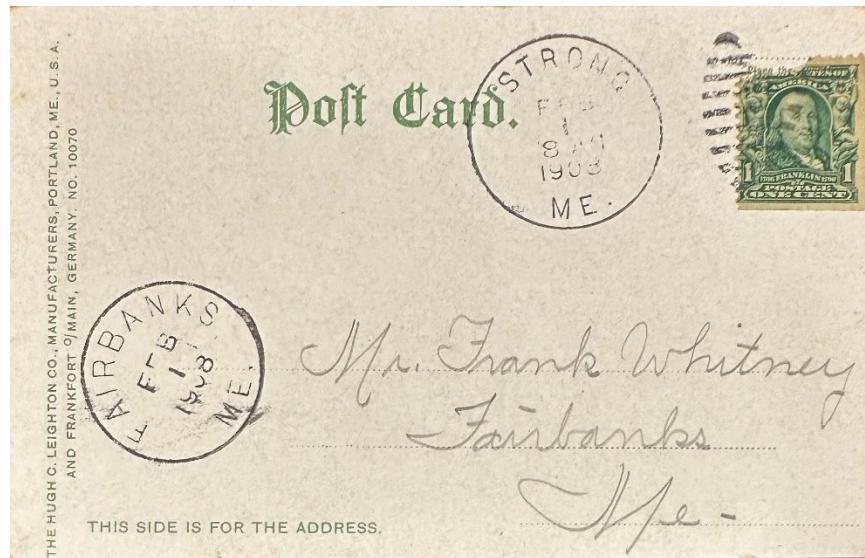 THE HUGH C. LEIGHTON CO., MANUFACTURERS, PORTLAND, ME., U.S.A.
AND FRANKFORT O/MAIN, GERMANY. NO. 10070
Post Card.
STRONG
FEB
1
8 AM
1908
ME.
AMERICA
1706 FRANKLIN 1790
POSTAGE
1 ONE CENT 1
FAIRBANKS
FEB
1
1908
ME.
Mr. Frank Whitney
Fairbanks
Me -
THIS SIDE IS FOR THE ADDRESS.